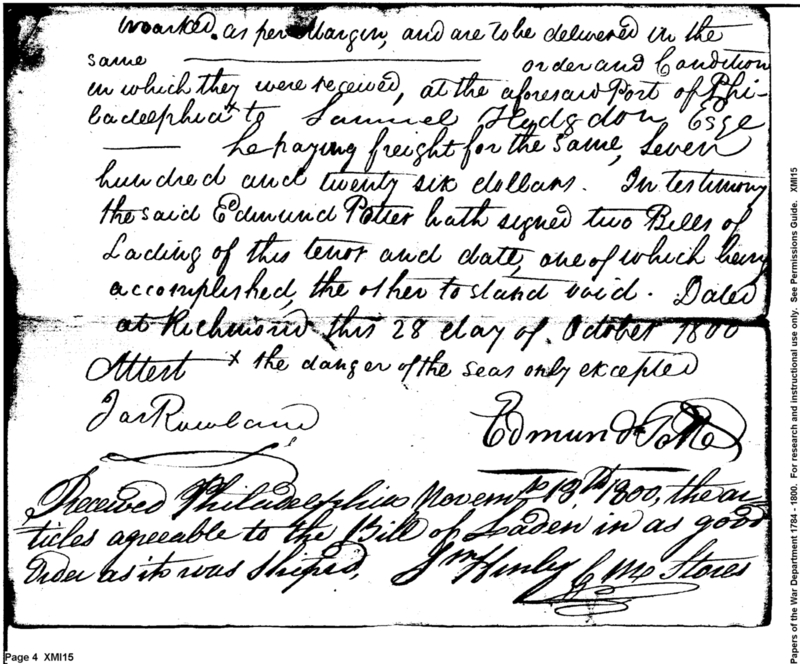 marked. as per Margin, and are to be delivered in the
same ———— order and Condition
in which they were received, at the aforesaid Port of Phi-
ladelphia x to Samuel Hodgdon Esqe
—— he paying freight for the same, Seven
hundred and twenty six dollars. In testimony
the said Edmund Potter hath signed two Bills of
Lading of this tenor and date, one of which being
accomplished, the other to stand void. Dated
at Richmond this 28 day of October 1800
Attest x the danger of the seas only excepted
Jas Rowland
Edmund Potter
Received Philadelphia Novemr 13th 1800, the ar-
ticles agreeable to the Bill of Laden in as good
Order as it was Shiped,
Jno Henly
Stores
Page 4 XMI15
Papers of the War Department 1784 - 1800. For research and instructional use only. See Permissions Guide. XMI15